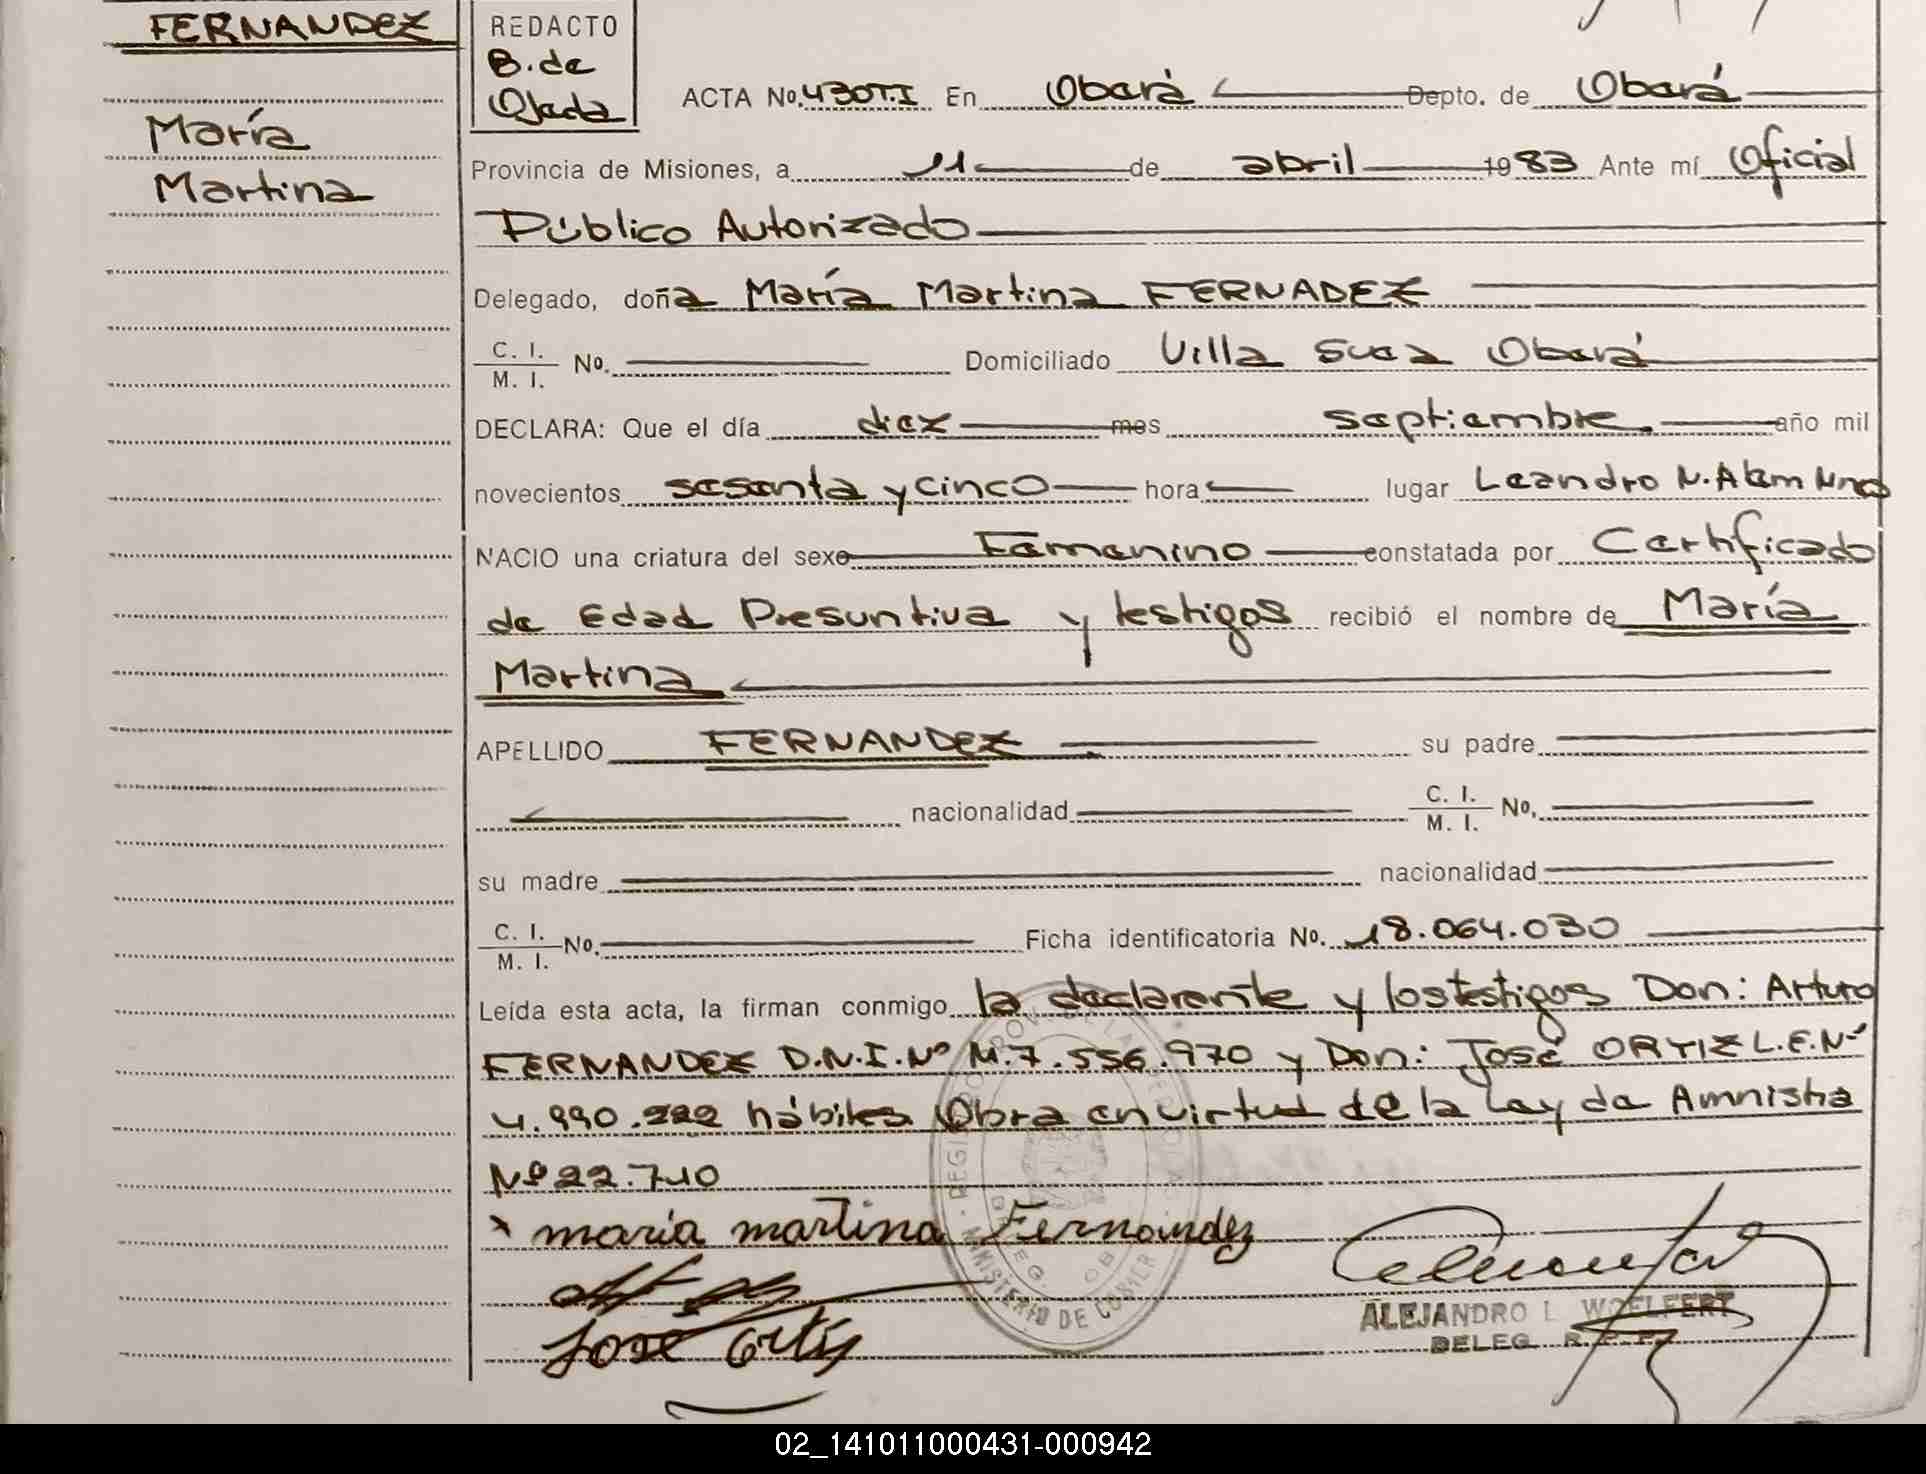 FERNANDEZ
María
Martina
REDACTO
B. de
Ojeda
ACTA No. 430 T.I En Oberá Depto. de Oberá
Provincia de Misiones, a 11 de abril 1983 Ante mí Oficial
Público Autorizado
Delegado, doña María Martina FERNADEZ
C. I.
M. I. No. Domiciliado Villa Suea Oberá
DECLARA: Que el día diez mes septiembre año mil
novecientos sesenta y cinco hora lugar Leandro N. Alem Mnes
NACIO una criatura del sexo Femenino constatada por Certificado
de Edad Presuntiva y testigos recibió el nombre de María
Martina
APELLIDO FERNANDEZ su padre
nacionalidad C. I.
M. I. No.
su madre nacionalidad
C. I.
M. I. No. Ficha identificatoria No. 18.064.030
Leída esta acta, la firman conmigo la declarante y los testigos Don: Arturo
FERNANDEZ D.N.I. Nº M. 7.556.970 y Don: José ORTIZ L.E. Nº
4.990.222 hábiles Obra en virtud de la Ley de Amnistia
Nº 22.710
x maría martina Fernández
José Ortiz
ALEJANDRO L. WOELFERT
DELEG. R.P.P.
MINISTERIO DE GOBIER
02_141011000431-000942